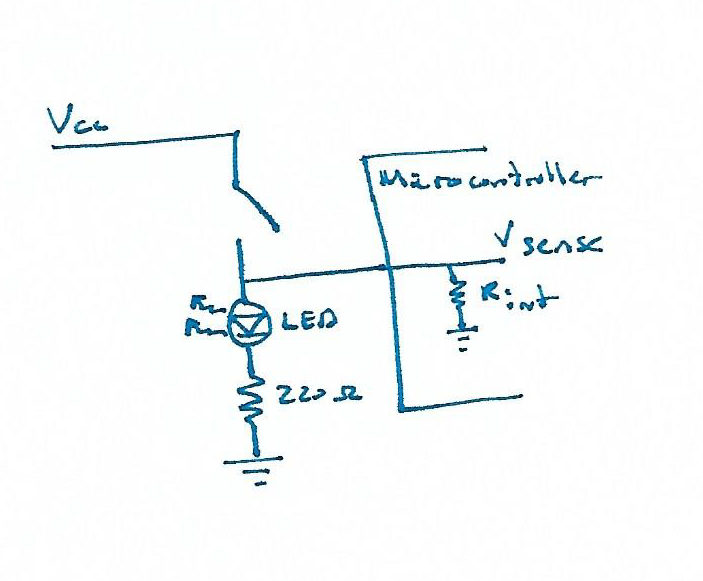 Vcc
Microcontroller
Vsense
Rint
LED
220 Ω